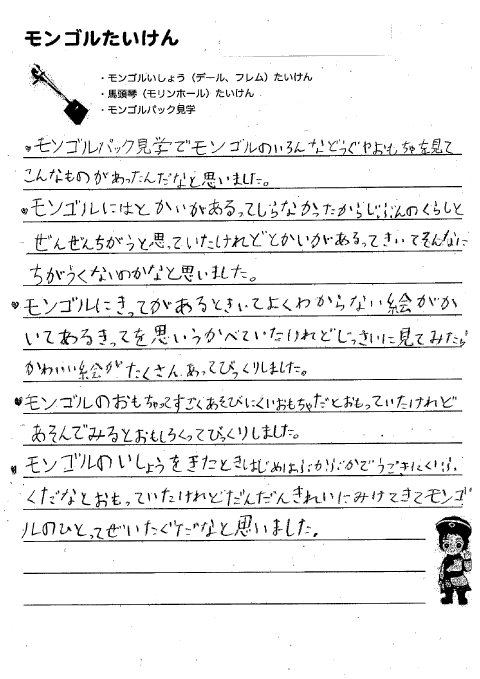 モンゴルたいけん
・モンゴルいしょう（デール、フレム）たいけん
・馬頭琴（モリンホール）たいけん
・モンゴルパック見学
モンゴルパック見学でモンゴルのいろんなどうぐやおもちゃを見て
こんなものがあったんだなと思いました。
モンゴルにはとかいがあるってしらなかったからじぶんのくらしと
ぜんぜんちがうと思っていたけれどとかいがあるってきいてそんなに
ちがうくないのかなと思いました。
モンゴルにきってがあるときいてよくわからない絵がか
いてあるきってを思いうかべていたけれどじっさいに見てみたら
かわいい絵がたくさんあってびっくりしました。
モンゴルのおもちゃってすごくあそびにくいおもちゃだとおもっていたけれど
あそんでみるとおもしろくってびっくりしました。
モンゴルのいしょうをきたときはじめはぶかぶかでうごきにくいふ
くだなとおもっていたけれどだんだんきれいにみけてきてモンゴ
ルのひとってぜいたくだなと思いました。